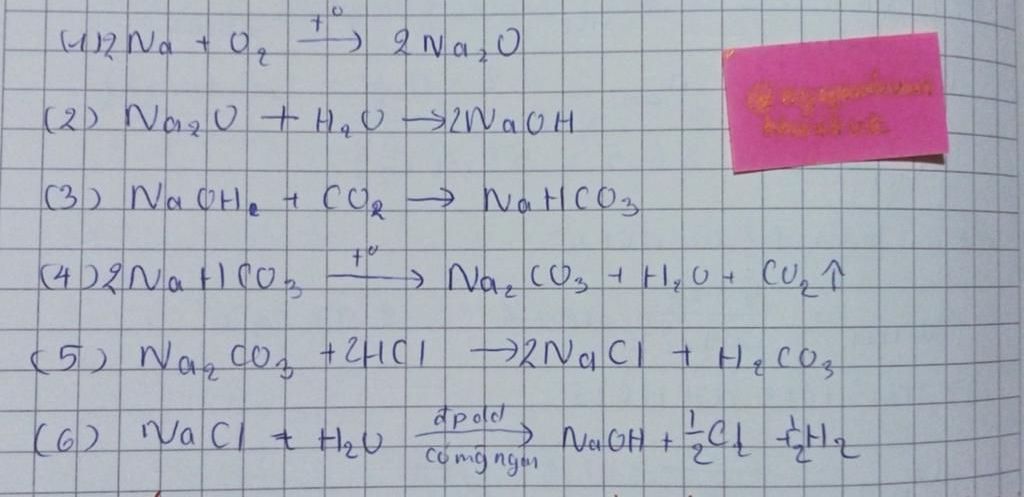 (1) 2Na + O₂ →(t°) 2Na₂O
(2) Na₂O + H₂O → 2NaOH
(3) NaOH + CO₂ → NaHCO₃
(4) 2NaHCO₃ →(t°) Na₂CO₃ + H₂O + CO₂↑
(5) Na₂CO₃ + 2HCl → 2NaCl + H₂CO₃
(6) NaCl + H₂O →(đpdd / có mg ngăn) NaOH + ½Cl₂ + ½H₂